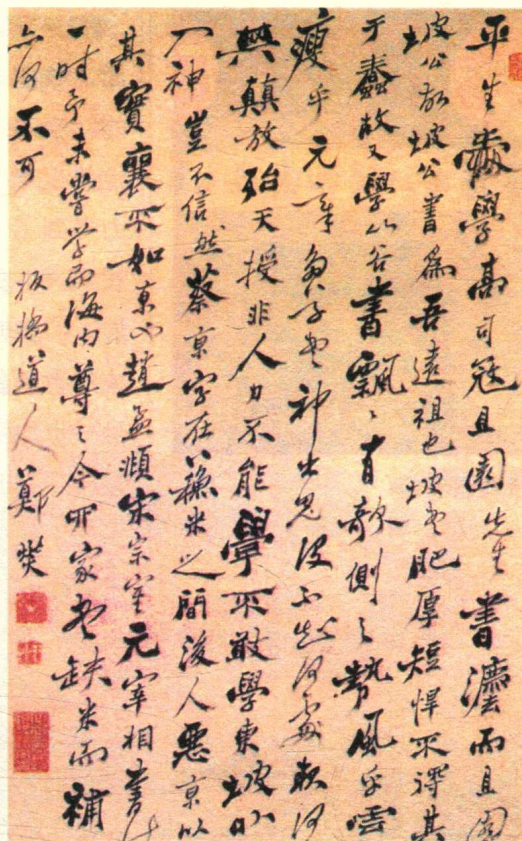 平生愛學高司寇且園先生書灋而且園
坡公故坡公書爲吾遠祖也坡書肥厚短悍不得其
于蠢故又學山谷書飄〻有欹側之勢風乎雲
瘦乎元章多草書神出鬼没不知何處起何
其顛放殆天授非人力不能學不敢學東坡以
入神豈不信然蔡京字在蘇米之間後人惡京以
其實襄不如京也趙孟頫宋宗室元宰相書法
一時予未嘗學而海内尊之今四家書缺米而補
亦何不可 板橋道人鄭燮